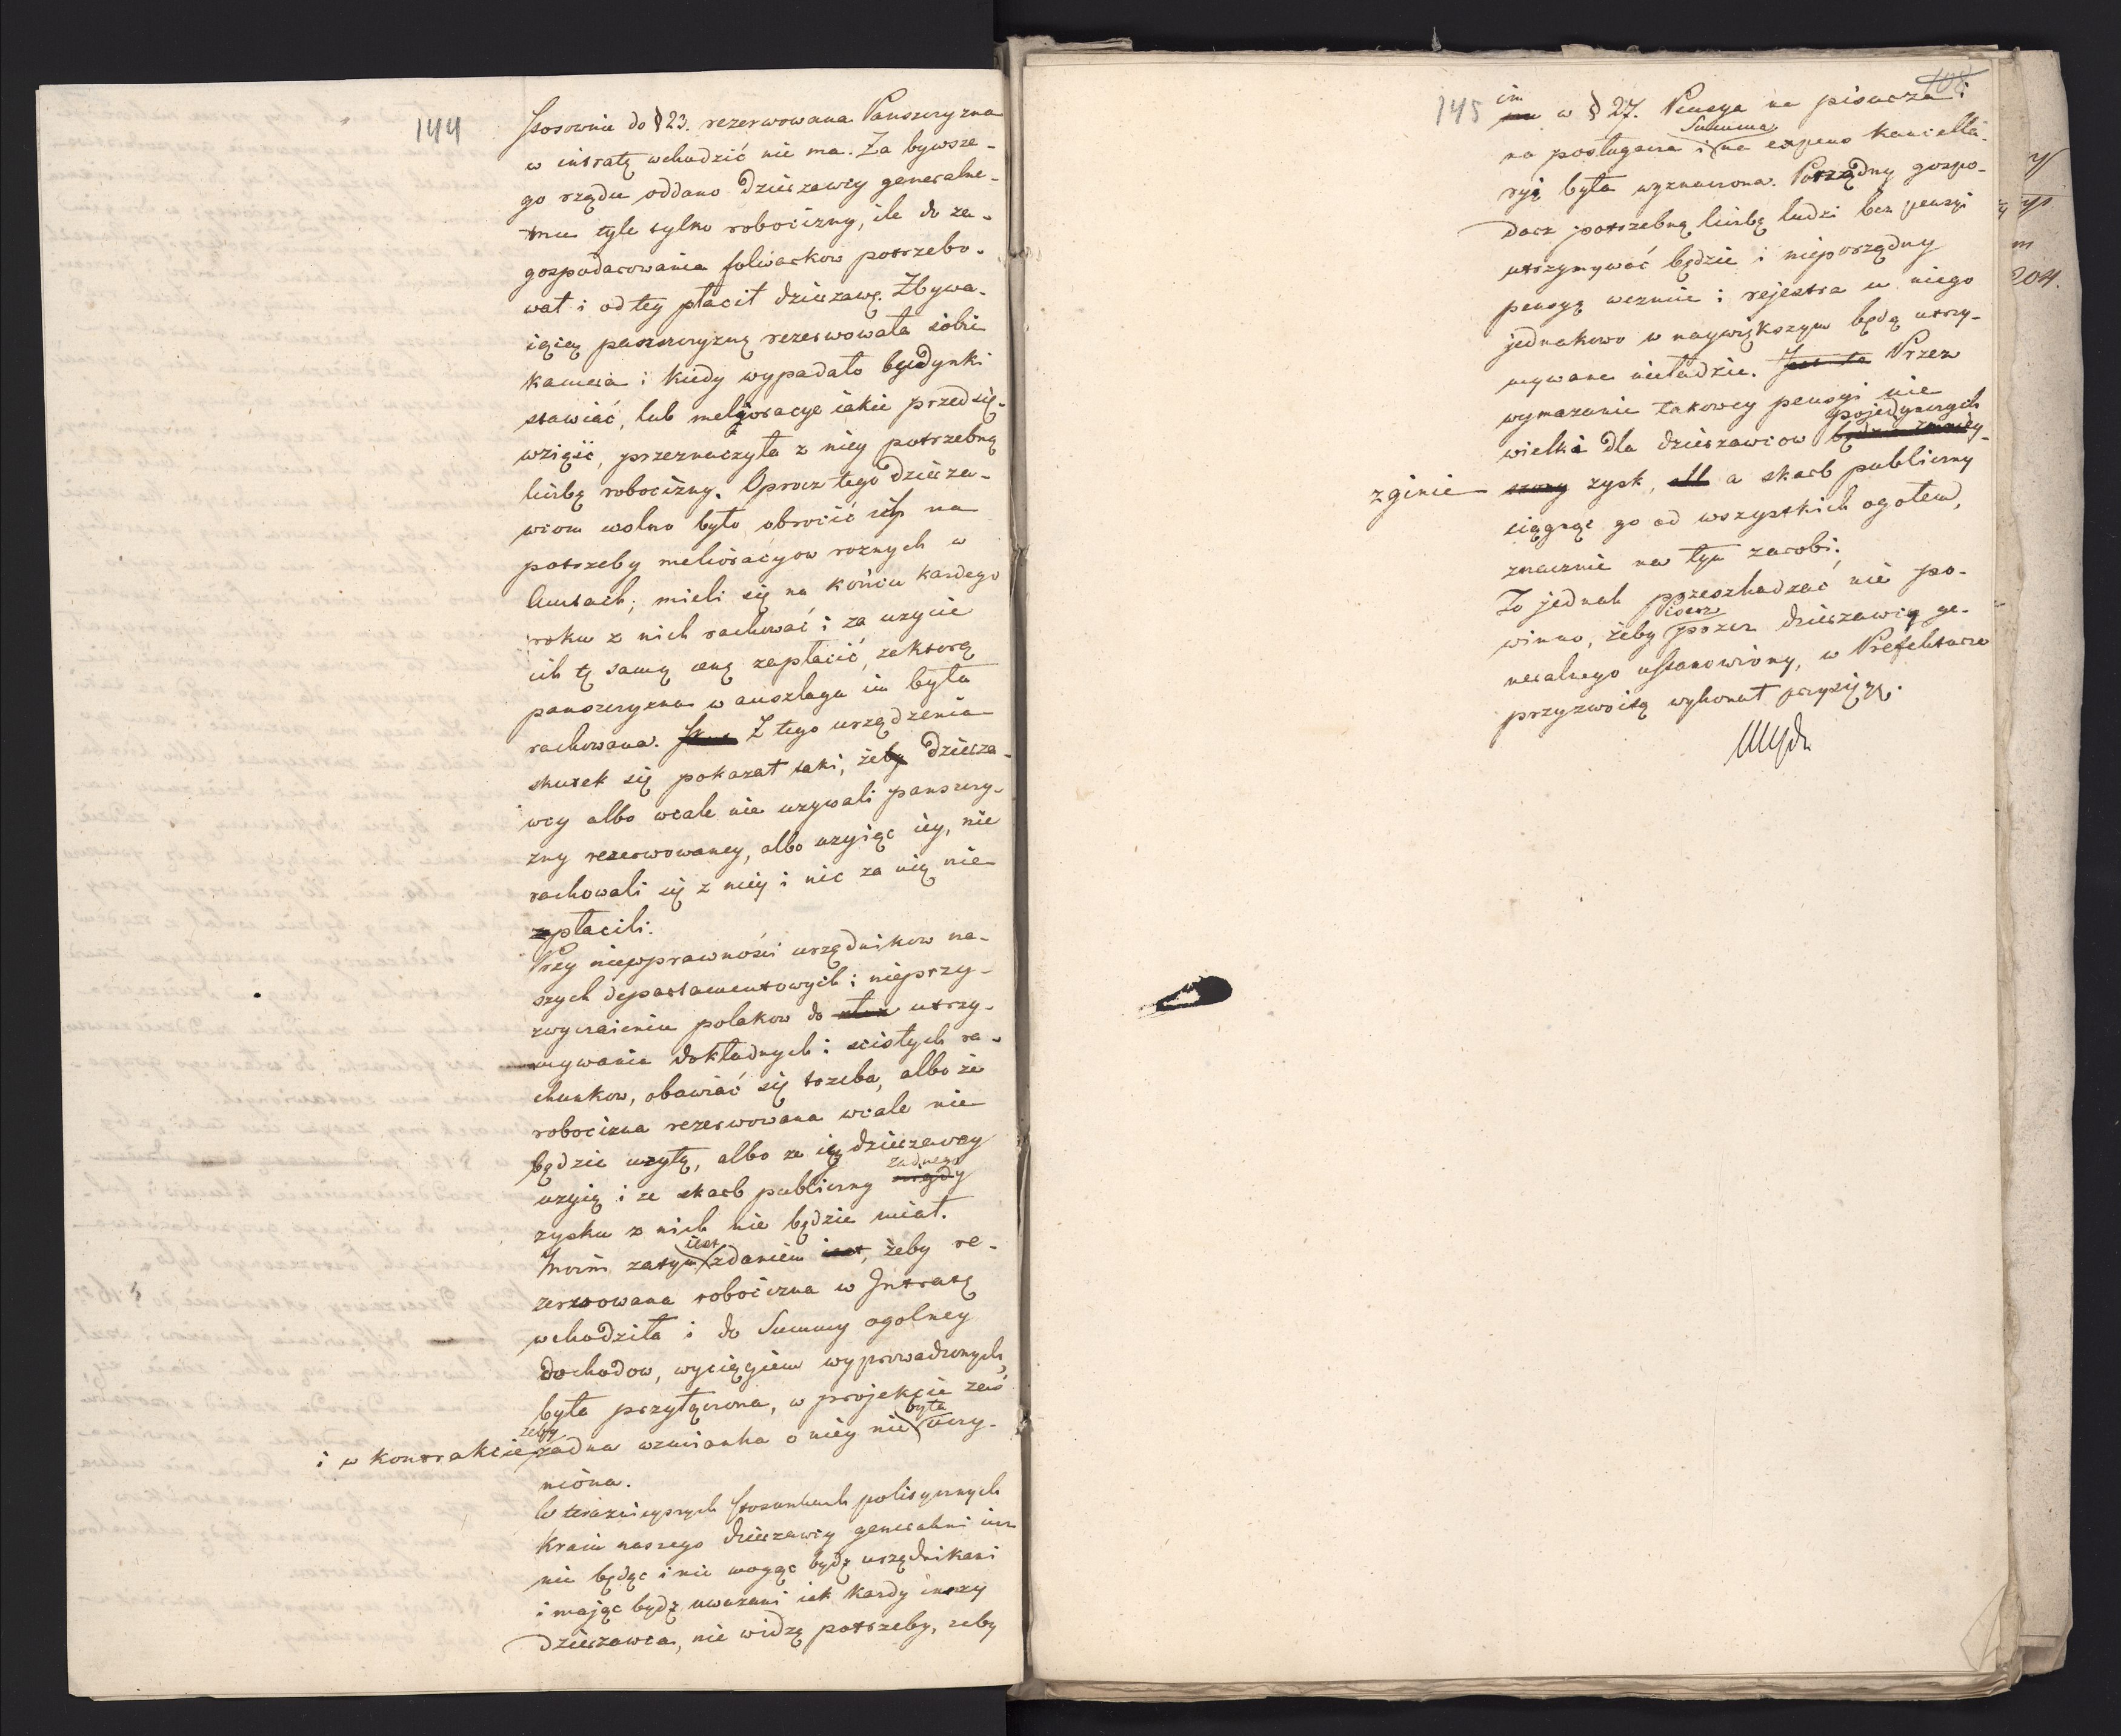 144
stosownie do § 23. rezerwowana Panszczyzna
w intratę wchodzić nie ma. Za bywsze-
go rządu oddano Dzierzawcy generalne-
mu tyle tylko robocizny, ile do za-
gospodarowania folwarkow potrzebo-
wał i od tey płacił dzierzawę. Zbywa-
iącą panszczyznę rezerwowała sobie
kamera i kiedy wypadało budynki
stawiać, lub melioracye iakie przedsię-
wziąść, przeznaczyła z niey potrzebną
liczbę robocizny. Oprocz tego Dzierza-
wcom wolno było obrocić ich na
potrzeby melioracyow roznych w
Amtach; mieli się na końcu kazdego
roku z nich rachować i za uzycie
ich tę samą cenę zapłacić, za ktorą
panszczyzna w anszlagu im była
rachowana. Z tego urządzenia
skutek się pokazał taki, że Dzierza-
wcy albo wcale nie uzywali panszczy-
zny rezerwowaney, albo uzyiąc iey, nie
rachowali się z niey i nic za nię nie
płacili.
Przy niewprawności urzędnikow na-
szych departamentowych i nieprzy-
zwyczaieniu polakow do utrzy-
mywania dokładnych i scisłych ra-
chunkow, obawiać się trzeba, albo że
robocizna rezerwowana wcale nie
będzie uzytą, albo ze ią dzierzawcy
żadnego
uzyią i ze skarb publiczny nigdy
zysku z nich nie będzie miał.
iest
Moim zatym zdaniem iest, żeby re-
zerwowana robocizna w Intratę
wchodziła i do Summy ogolney
dochodow, wyciągiem wyprowadzonych,
była przyłączona, w projekcie zaś
zeby była
i w kontrakcie żadna wzmianka o niey nie uczy-
niona.
W teraznieyszych stosunkach politycznych
kraiu naszego dzierzawcy generalni
nie będąc i nie mogąc bydź urzędnikami
i mając bydź uwazani iak kazdy inszy
Dzierzawca, nie widzę potrzeby, zeby
108
145
im
w § 27. Pensya na pisarza i
Summa
na posługacza i na expens kancella-
ryi była wyznaczona. Porządny gospo-
darz potrzebną liczbę ludzi bez pensyi
utrzymywać będzie i nieporządny
pensyą wezmie i rejestra u niego
jednakowo w naywiększym będą utrzy-
mywane nieładzie. Przez
wymazanie takowey pensyi nie
pojedynczych
wielki dla dzierzawcow będzie zmniey-
zginie szony zysk, a skarb publiczny
ciągnąc go od wszystkich ogołem,
znacznie na tym zarobi.
To jednak przeszkadzać nie po-
Pisarz
winno, żeby przez dzierzawcę ge-
neralnego ustanowiony, w Prefekturze
przyzwoitą wykonał przysięgę.
204.